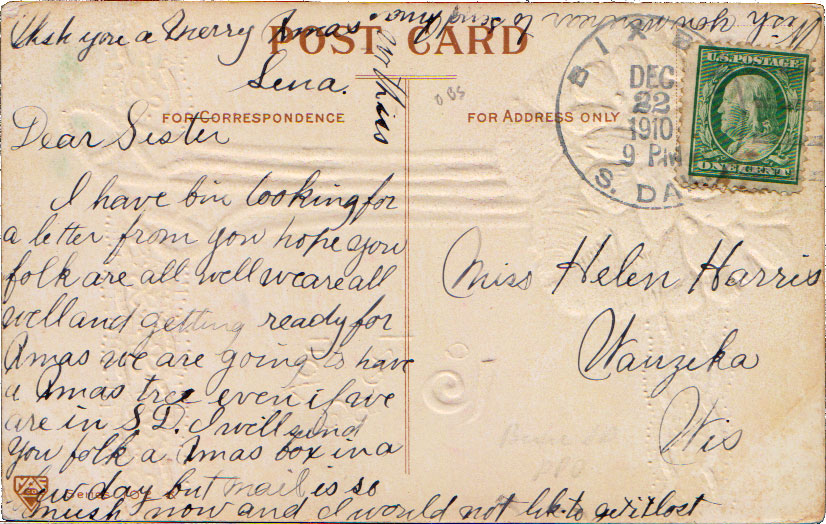 Wish you a Merry Xmas.
Lena.
POST CARD
FOR CORRESPONDENCE
FOR ADDRESS ONLY
Dear Sister
I have bin looking for
a letter from you hope you
folk are all well we are all
well and getting ready for
Xmas we are going to have
a Xmas tree even if we
are in S.D. I will send
you folk a Xmas box in a
few day but mail is so
mush now and I would not like to get it lost
Miss Helen Harris
Wauzeka
Wis
BIX
DEC
22
1910
9 PM
S. DA
U.S. POSTAGE
ONE CENT
Series